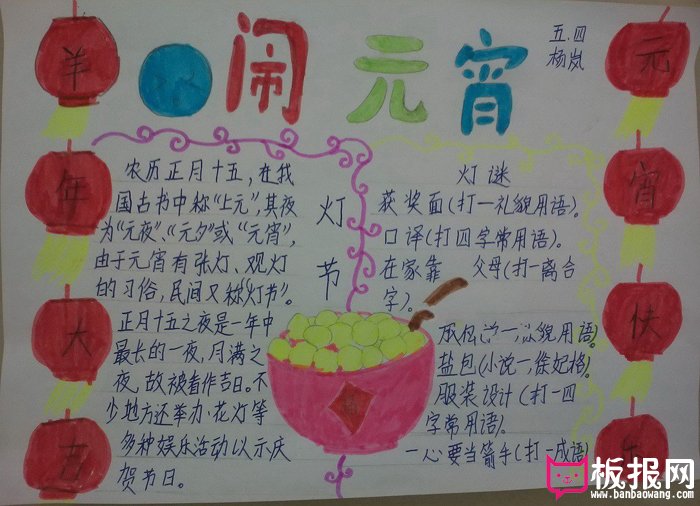 闹元宵
五.四
杨岚
羊
年
大
吉
元
宵
快
乐
农历正月十五,在我
国古书中称“上元”,其夜
为“元夜”、“元夕”或“元宵”,
由于元宵有张灯、观灯
的习俗,民间又称“灯节”。
正月十五之夜是一年中
最长的一夜,月满之
夜,故被看作吉日。不
少地方还举办花灯等
多种娱乐活动以示庆
贺节日。
灯
节
灯谜
获奖面(打一礼貌用语)。
口译(打四字常用语)。
在家靠 父母(打一离合
字)。
貌用语)。
盐包(小说一
服装设计(打一四
字常用语)。
一心要当箭手(打一成语)
板报网
www.banbaowang.com